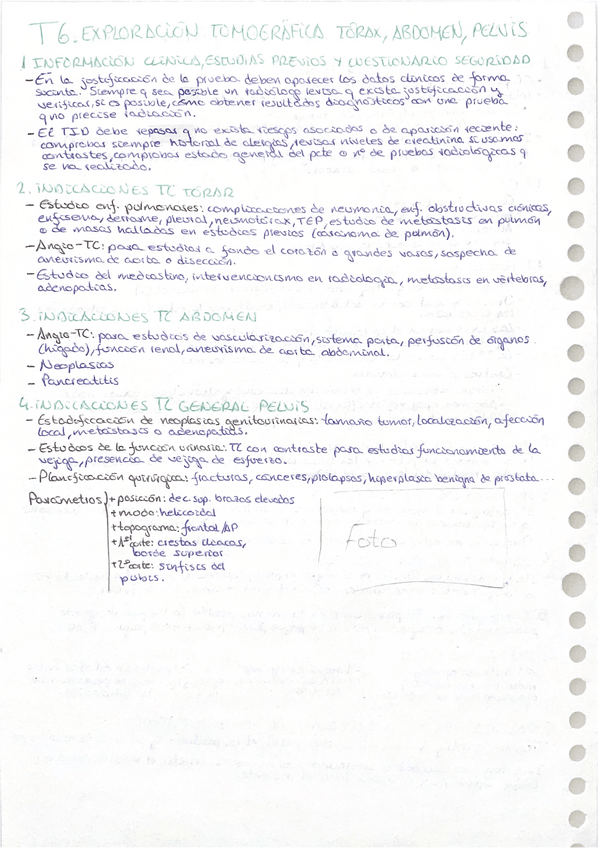 T6. EXPLORACIÓN TOMOGRÁFICA TÓRAX, ABDOMEN, PELVIS
1 INFORMACIÓN CLÍNICA, ESTUDIAS PREVIOS Y CUESTIONARIO SEGURIDAD
- En la justificación de la prueba deben aparecer los datos clínicos de forma
sucinta. Siempre q sea posible un radiólogo revisa q exista justificación y
verificar, si es posible, cómo obtener resultados diagnósticos con una prueba
q no precise radiación.
- El TID debe repasar q no exista riesgos asociados o de aparición reciente:
comprobar siempre historial de alergias, revisar niveles de creatinina si usamos
contrastes, comprobar estado general del pcte o nº de pruebas radiológicas q
se va realizado.
2. INDICACIONES TC TÓRAX
- Estudio enf. pulmonares: complicaciones de neumonía, enf. obstructivas crónicas,
enfisema, derrame, pleural, neumotórax, TEP, estudio de metástasis en pulmón
o de masas halladas en estudios previos (carcinoma de pulmón).
- Angio-TC: para estudiar a fondo el corazón o grandes vasos, sospecha de
aneurisma de aorta o disección.
- Estudio del mediastino, intervencionismo en radiología, metástasis en vértebras,
adenopatías.
3. INDICACIONES TC ABDOMEN
- Angio-TC: para estudios de vascularización, sistema porta, perfusión de órganos
(hígado), función renal, aneurisma de aorta abdominal.
- Neoplasias
- Pancreatitis
4. INDICACIONES TC GENERAL PELVIS
- Estadificación de neoplasias genitourinarias: tamaño tumor, localización, afección
local, metástasis o adenopatías.
- Estudios de la función urinaria: TC con contraste para estudiar funcionamiento de la
vejiga, presencia de vejiga de esfuerzo.
- Planificación quirúrgica: fracturas, cánceres, prolapsos, hiperplasia benigna de próstata...
Parámetros + posición: dec. sup. brazos elevados
+ modo: helicoidal
+ topograma: frontal AP
+ 1er corte: crestas ilíacas,
borde superior
+ 2º corte: sínfisis del
pubis.
Foto